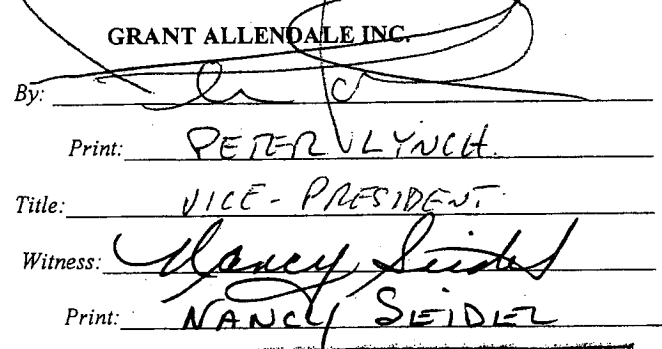 GRANT ALLENDALE INC.
By:
Print: PETER LYNCH.
Title: VICE-PRESIDENT.
Witness: Nancy Seidel
Print: NANCY SEIDEL